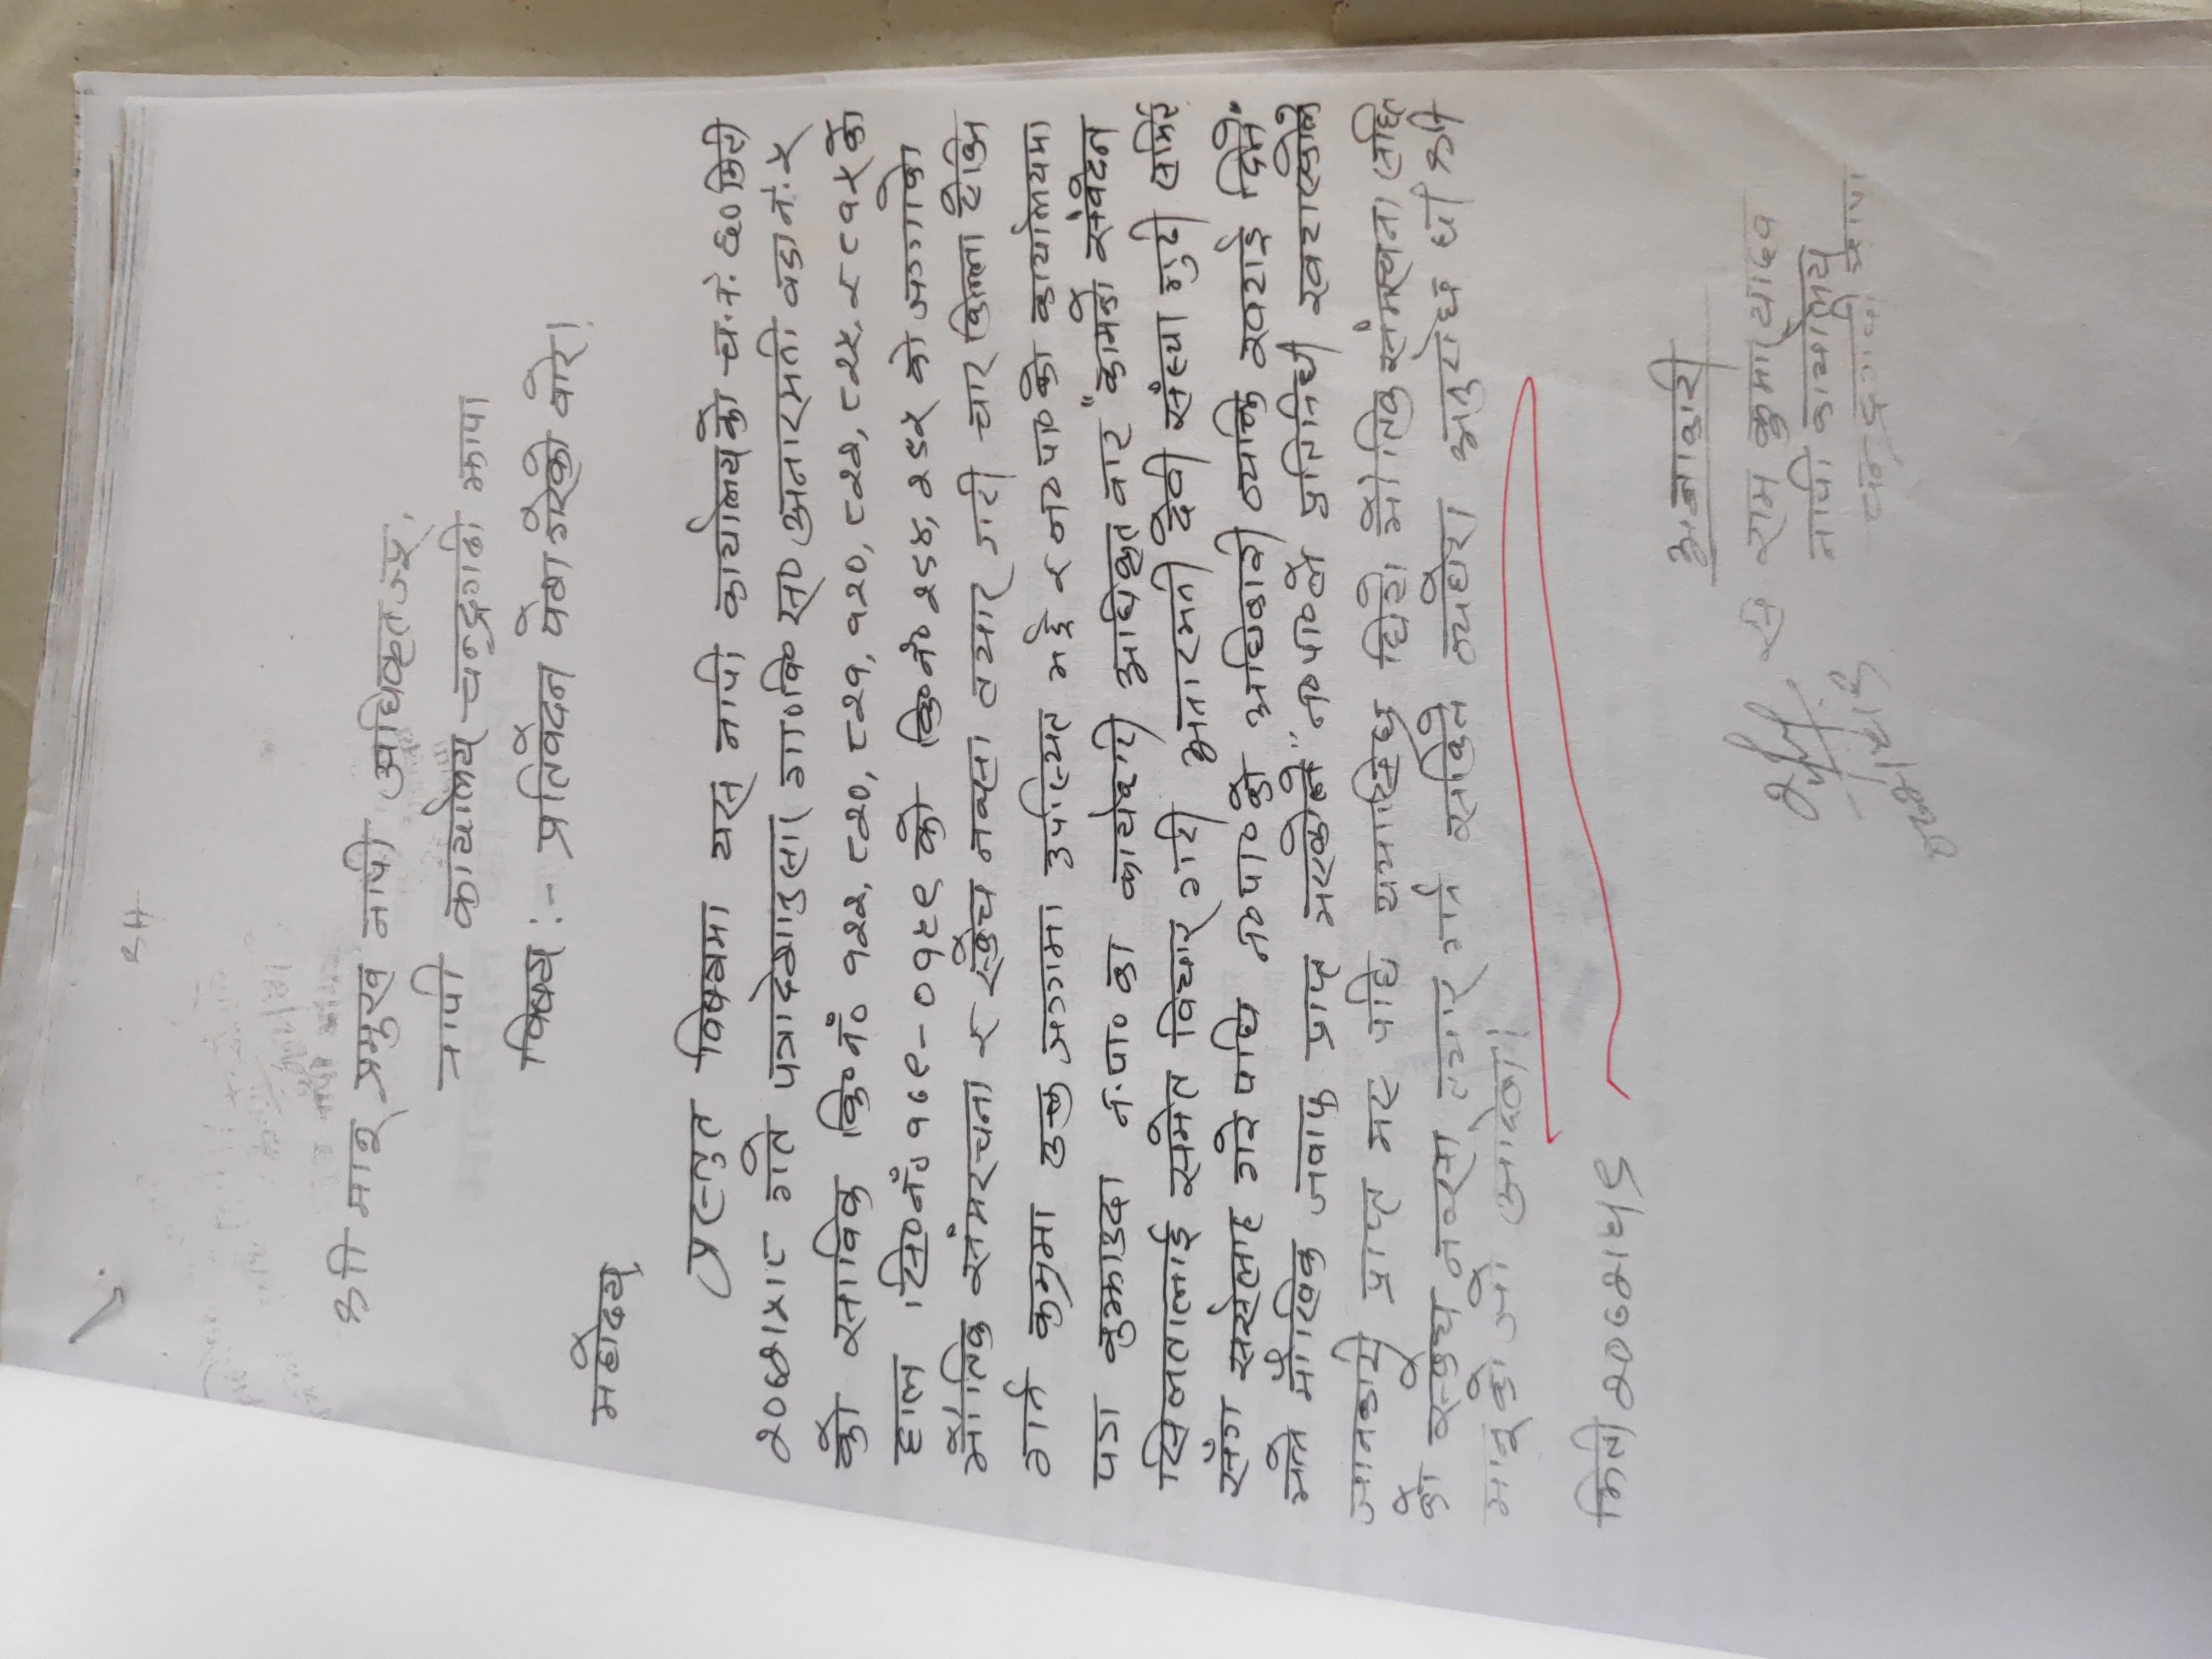 श्री मान् प्रमुख नापी अधिकृत ज्यू,
नापी कार्यालय चन्द्रगढी झापा
विषय :- प्रतिवेदन पेश गरेको बारे।
महोदय,
प्रस्तुत विषयमा यस नापी कार्यालयको च.नं. ६० मिती
२०७२।५।८ गते पत्रादेशानुसार गा०वि०स० अनारमनी वडा नं. ५
को साविक कि०नं० १२२, ८२०, ८२१, १२०, ८२२, ८२५, र ८१५ को
हाल सि०नं० १७९-०१५९ को कि०नं० २९४, २९५ को जग्गाको
भौतिक संमरचना र स्केच नक्सा तयार गरी चार किल्ला
गर्न क्रममा उक्त जग्गामा उपस्थित भई र न०पा०को कार्यालयमा
पत्र बुझाउदा न.पा० का कार्यकारी अधिकृत बाट "कामको संवेदन
सिलतालाई समेत विचार गरी अनारमनी देवी संस्था गुठी
सँग सरसल्लाह गरे पछि न०पा०को अधिकारी व्यक्ति खटाई दिने"
भन्ने मौखिक जवाफ प्राप्त भएकोले" न०पा०ले प्रतिनिधी खटाएकोले
जानकारी प्राप्त भए पछि यथासिघ्र भौतिक संमरचना सहित
को स्केच नक्सा तयार गर्न सकिने व्यहोरा अनुरोध छ। श्री
मान्को जो आदेश।
मिती २०७२।५।९
आज्ञाकारी
राम कुमार यादव
नापी कार्यालय
चन्द्रगढी झापा